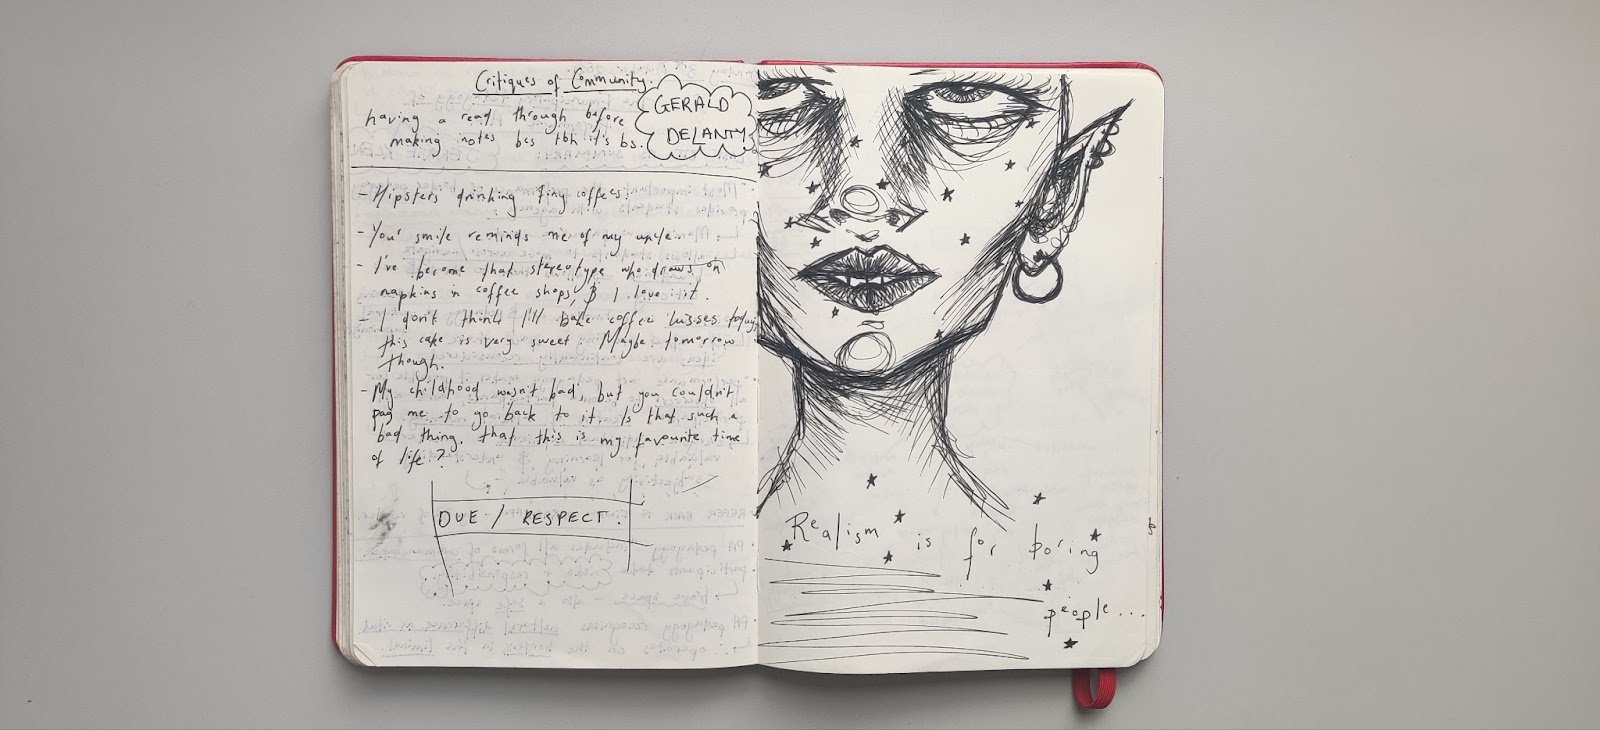 Critiques of Community.
GERALD
DELANTY
having a read through before
making notes bcs tbh it's bs.
- Hipsters drinking tiny coffees.
- Your smile reminds me of my uncle.
- I've become that stereotype who draws on
napkins in coffee shops, & I love it.
- I don't think I'll bake coffee kisses today,
this cake is very sweet. Maybe tomorrow
though.
- My childhood wasn't bad, but you couldn't
pay me to go back to it. Is that such a
bad thing, that this is my favourite time
of life?
DUE / RESPECT.
Realism is for boring
people...